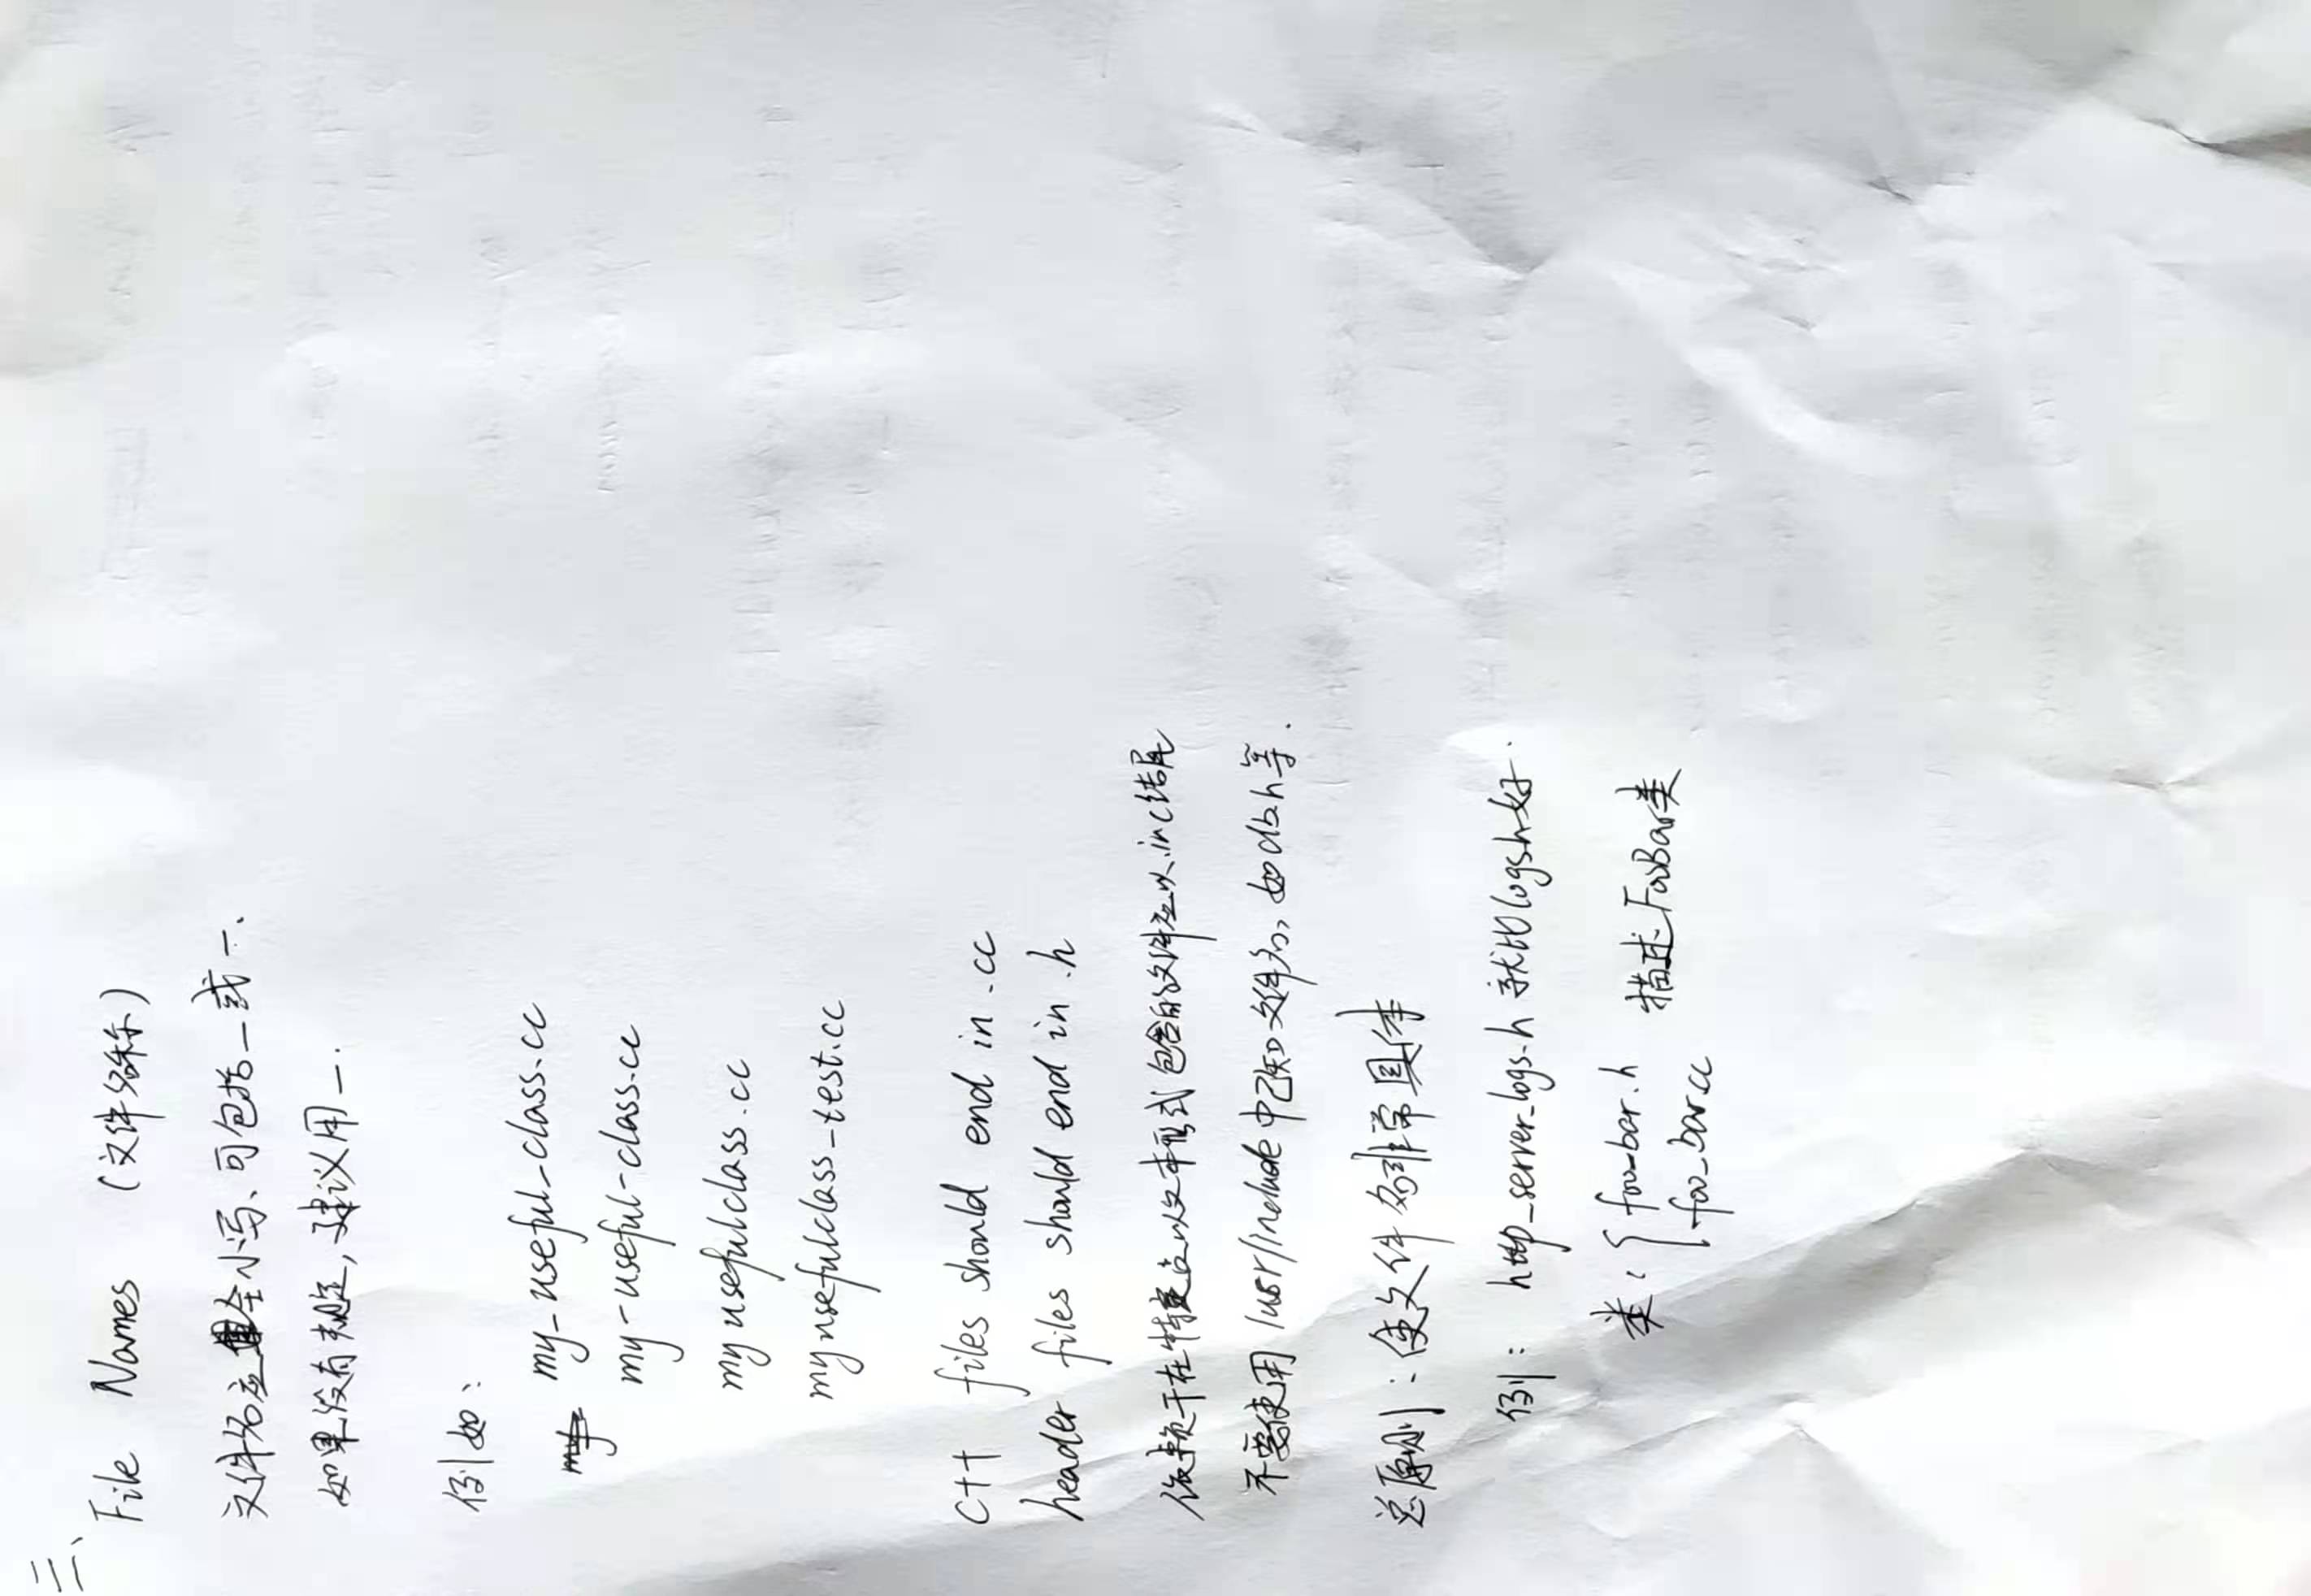 三、
File Names （文件名称）
文件名应全小写、可包括_或-、
如果没有规定，建议用_.
例如：
my_useful_class.cc
my-useful-class.cc
myusefulclass.cc
myusefulclass_test.cc
C++ files should end in .cc
header files should end in .h
依赖于在特定点以文本形式包含的文件应以.inc结尾
不要使用/usr/include中已知文件名，如db.h等.
总原则：使文件名非常具体
例：http_server_logs.h 就比logs.h好.
类：{ foo_bar.h 描述FooBar类
foo_bar.cc